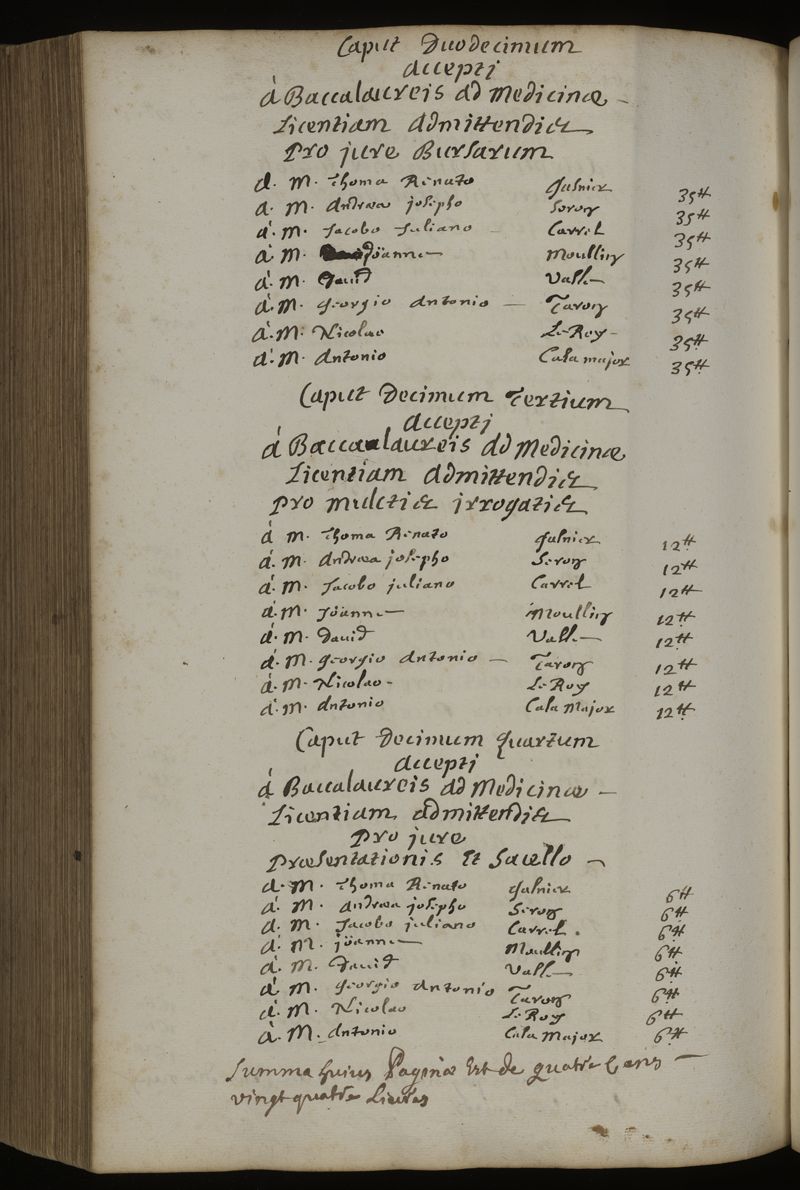 Caput Duodecimum
accepti
à Baccalaureis ad Medicinæ
Licentiam admittendis
Pro jure Bursarum
à. M. Thoma Renato Gasnier 35tt
à. M. Andræa josepho Seron 35tt
à. M. Jacobo Juliano Carrel 35tt
à M. jöanne Moullin 35tt
à. M. David Valle 35tt
à. M. Georgio Antonio Taron 35tt
à. M. Nicolao Le Roy 35tt
à. M. Antonio Casamajor 35tt
Caput Decimum Tertium
accepti
à Baccalaureis ad Medicinæ
Licentiam admittendis
pro mulctis irrogatis
à M. Thoma Renato Gasnier 12tt
à. M. Andræa josepho Seron 12tt
à. M. Jacobo juliano Carrel 12tt
à. M. Jöanne Moullin 12tt
à. M. David Valle 12tt
à. M. Georgio Antonio Taron 12tt
à. M. Nicolao Le Roy 12tt
à. M. Antonio Casa Major 12tt
Caput Decimum quartum
accepti
à Baccalaureis ad Medicinæ
Licentiam admittendis
Pro jure
Præsentationis Et Sacello
à. M. Thoma Renato Gasnier 6tt
à. M. Andræa josepho Seron 6tt
à. M. Jacobo juliano Carrel. 6tt
à. M. jöanne Moullin 6tt
à. M. David Valle 6tt
à M. Georgio Antonio Taron 6tt
à. M. Nicolao Le Roy 6tt
à. M. Antonio Casa Major 6tt
Summa huius Paginæ Est de quatre Cens
vingt quatre Livres